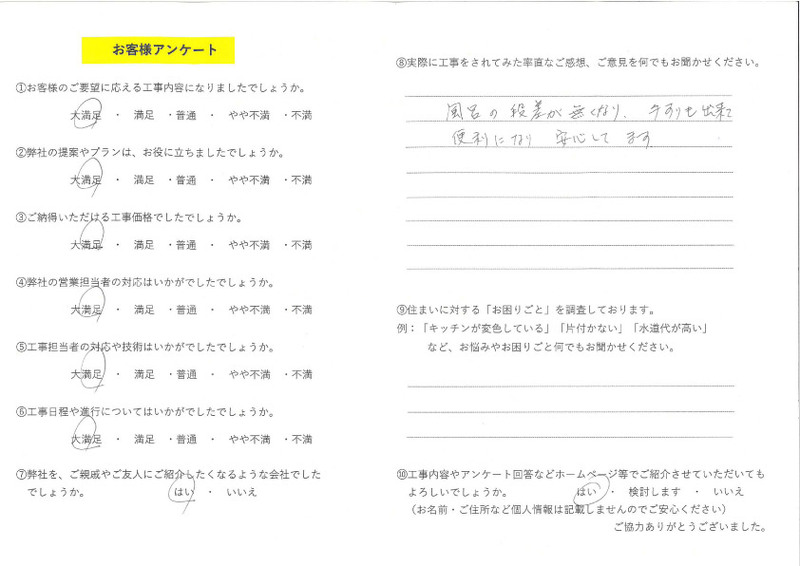 お客様アンケート
①お客様のご要望に応える工事内容になりましたでしょうか。
大満足 ・ 満足 ・普通 ・ やや不満 ・不満
②弊社の提案やプランは、お役に立ちましたでしょうか。
大満足 ・ 満足 ・普通 ・ やや不満 ・不満
③ご納得いただける工事価格でしたでしょうか。
大満足 ・ 満足 ・普通 ・ やや不満 ・不満
④弊社の営業担当者の対応はいかがでしたでしょうか。
大満足 ・ 満足 ・普通 ・ やや不満 ・不満
⑤工事担当者の対応や技術はいかがでしたでしょうか。
大満足 ・ 満足 ・普通 ・ やや不満 ・不満
⑥工事日程や進行についてはいかがでしたでしょうか。
大満足 ・ 満足 ・普通 ・ やや不満 ・不満
⑦弊社を、ご親戚やご友人にご紹介したくなるような会社でした
でしょうか。 はい ・ いいえ
⑧実際に工事をされてみた率直なご感想、ご意見を何でもお聞かせください。
風呂の段差が無くなり、手すりも出来て
便利になり 安心してます
⑨住まいに対する「お困りごと」を調査しております。
例：「キッチンが変色している」「片付かない」「水道代が高い」
など、お悩みやお困りごと何でもお聞かせください。
⑩工事内容やアンケート回答などホームページ等でご紹介させていただいても
よろしいでしょうか。 はい ・ 検討します ・ いいえ
（お名前・ご住所など個人情報は記載しませんのでご安心ください）
ご協力ありがとうございました。